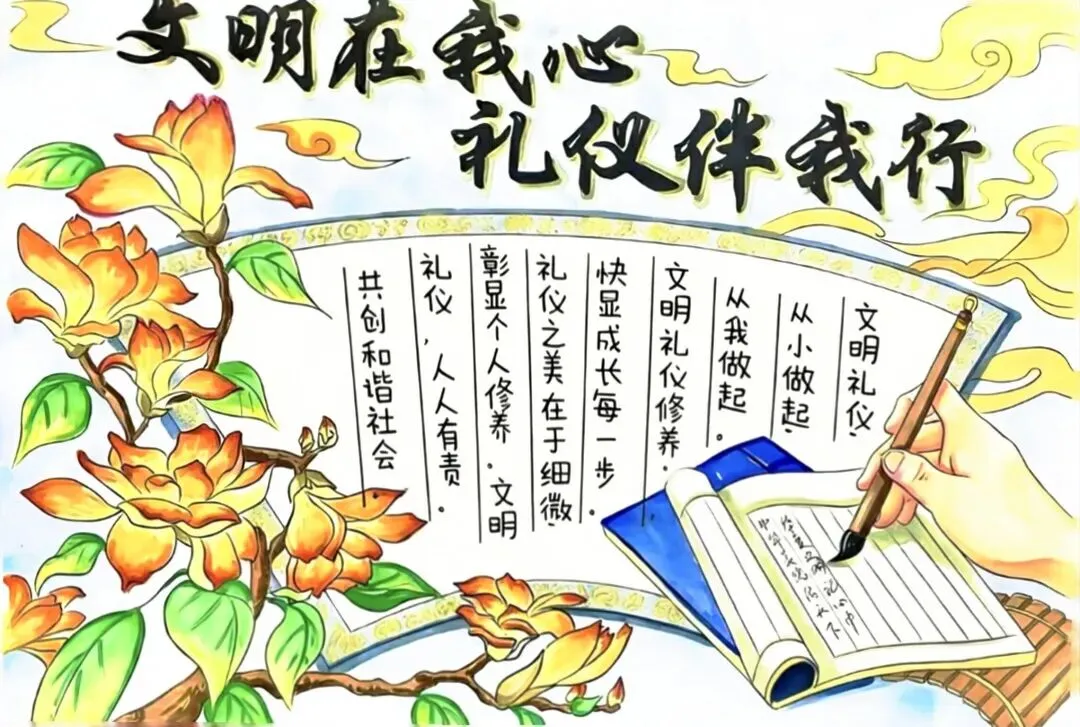 文明在我心
礼仪伴我行
文明礼仪，
从小做起，
从我做起。
文明礼仪修养，
快显成长每一步。
礼仪之美在于细微，
彰显个人修养。文明
礼仪，人人有责。
共创和谐社会
文明记心中
中华